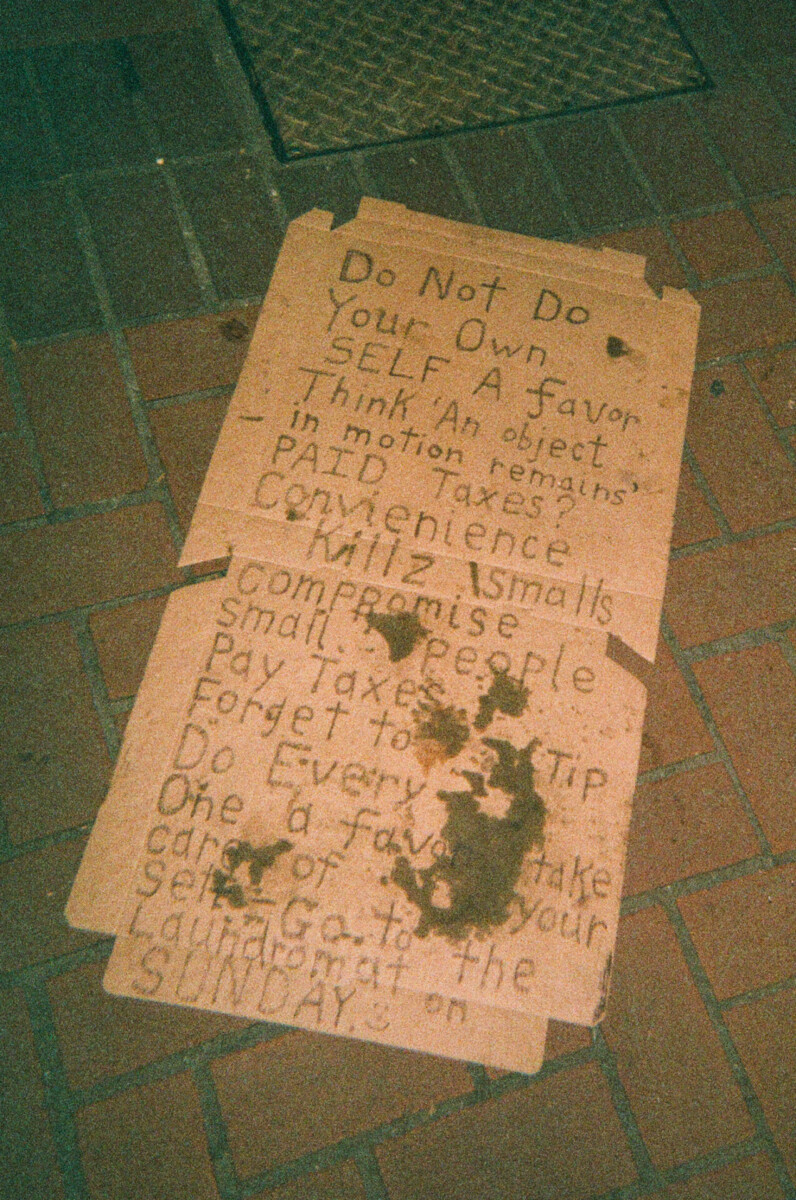 Do Not Do
Your Own
SELF A favor
Think 'An object
- in motion remains'
PAID Taxes?
Convienience
Killz \smalls
compromise
small.. people
Pay Taxes
Forget to Tip
Do Every
One a favor take
care of your
self-Go to the
Laundromat on
SUNDAY.